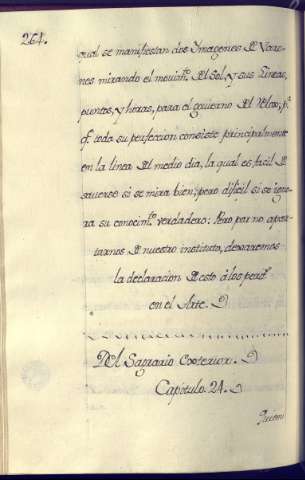 264.
qual se manifiestan dos Ymagenes de Varo-
nes mirando el movimto. del Sol, y sus lineas,
puntos, y horas, para el govierno del Relox; pr.
q. toda su perfeccion consiste principalmente
en la linea del medio dia, la qual es facil de
saverse si se mira bien; pero dificil si se igno-
ra su conocimto. verdadero: Pero por no apar-
tarnos de nuestro instituto, dexaremos
la declaracion de esto á los perd.
en el Arte.
Del Sagrario Exterior.
Capitulo. 24.